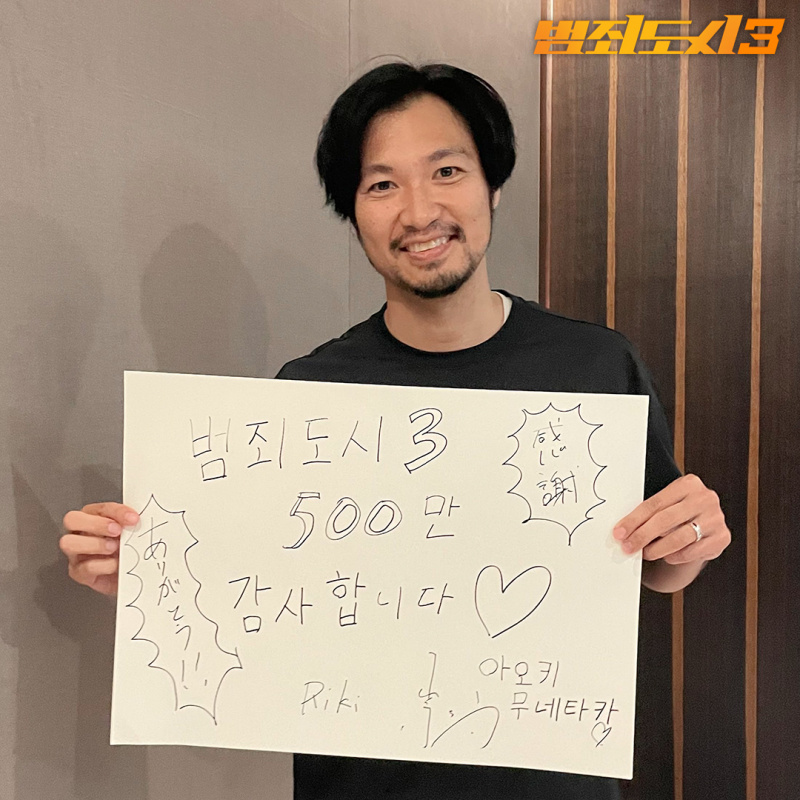 범죄도시3
범죄도시3
感謝
500만
ありがとう!!
감사합니다♡
Riki
아오키
무네타카♡